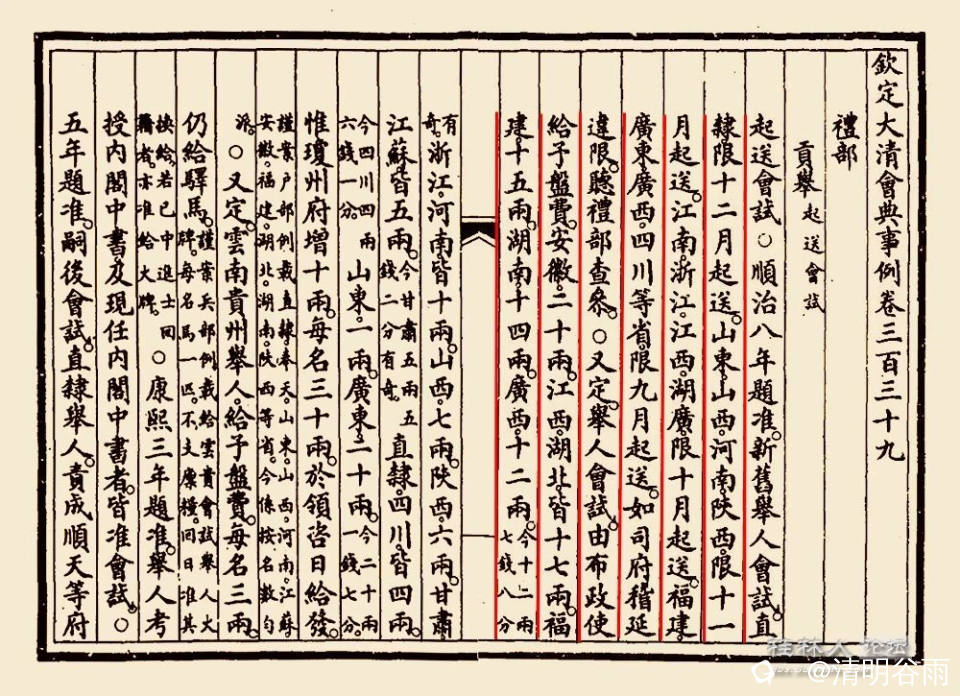 欽定大清會典事例卷三百三十九
禮部
貢舉 起送會試
起送會試○順治八年題准。新舊舉人會試。直
隸限十二月起送。山東。山西。河南。陝西。限十一
月起送。江南。浙江。江西。湖廣。限十月起送。福建
廣東。廣西。四川等省。限九月起送。如司府稽延
違限。聽禮部查參。○又定。舉人會試。由布政使
給予盤費。安徽。二十兩。江西。湖北。皆十七兩。福
建。十五兩。湖南。十四兩。廣西。十二兩。今十二兩七錢八分
有奇。浙江。河南。皆十兩。山西。七兩。陝西。六兩。甘肅
江蘇。皆五兩。今甘肅五兩五錢二分有奇。直隸。四川。皆四兩。
今四川四兩六錢一分。山東。一兩。廣東。二十兩。今二十兩一錢七分。
惟瓊州府增十兩。每名三十兩。於領咨日給發。
謹案戶部例載直隸。奉天。山東。山西。河南。江蘇。安徽。福建。湖北。湖南。陝西等省。今係按名數勻
派。○又定。雲南貴州舉人。給予盤費。每名三兩。
仍給驛馬。謹案兵部例載。給雲貴會試舉人火牌。每名馬一匹。不支廩糧。回日准其
換給。若已中進士回籍者。亦准給火牌。○康熙三年題准。舉人考
授內閣中書。及現任內閣中書者。皆准會試。○
五年題准。嗣後會試。直隸舉人。責成順天等府
桂林人论坛
@清明谷雨